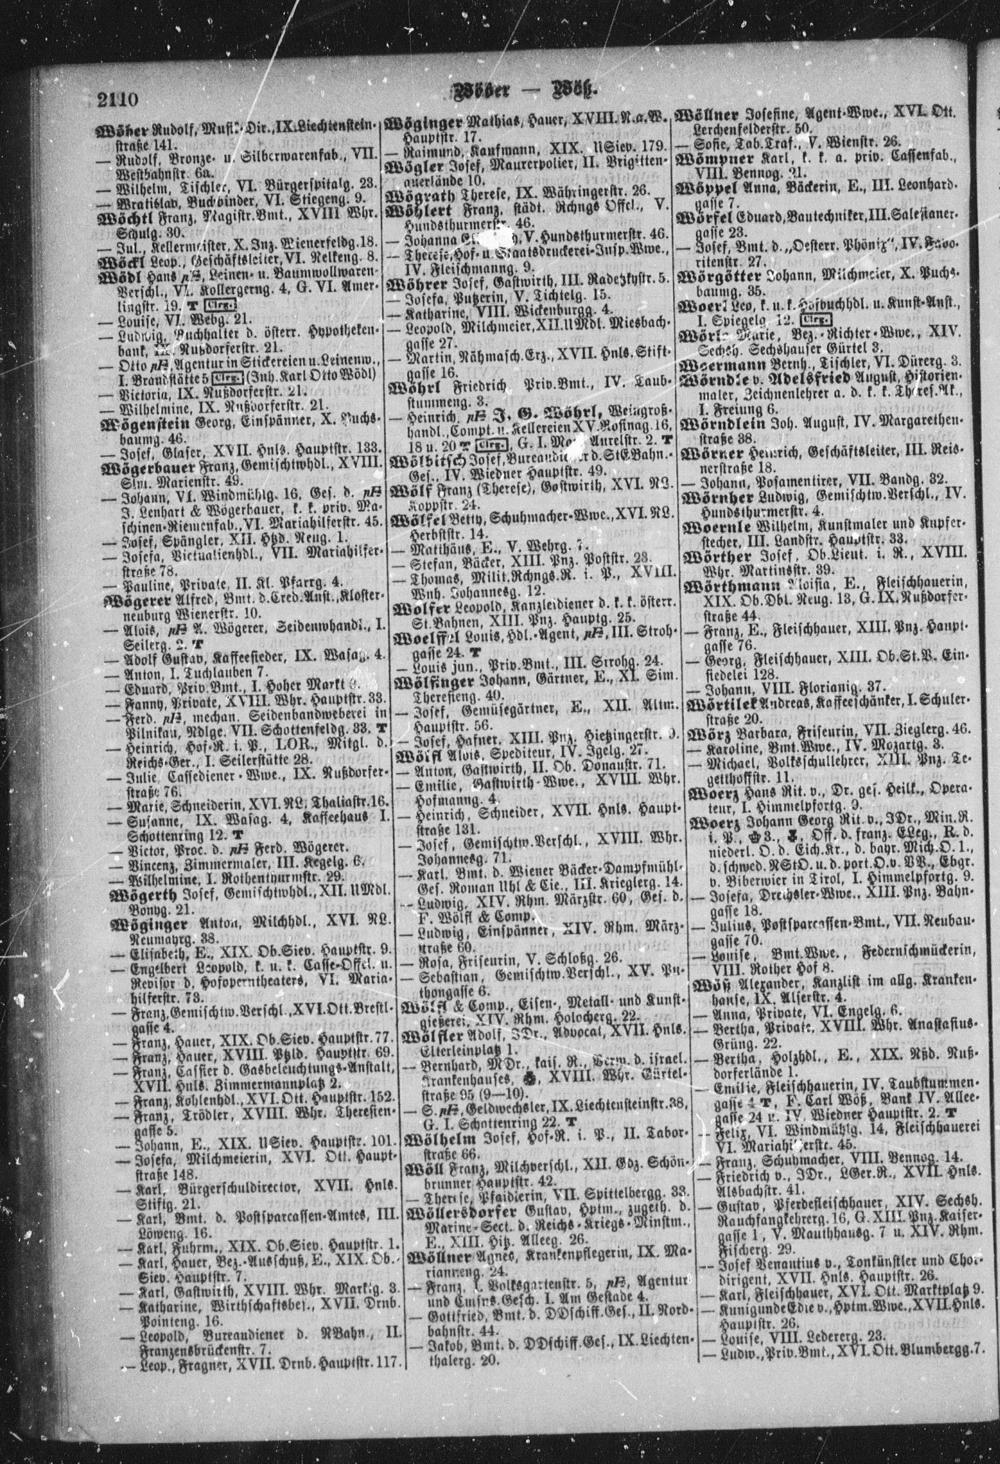 2110
Wöber — Wöß.
Wöber Rudolf, Musik-Dir., IX. Liechtenstein-
straße 141.
— Rudolf, Bronze- u. Silberwarenfab., VII.
Westbahnstr. 6a.
— Wilhelm, Tischler, VI. Bürgerspitalg. 23.
— Wratislav, Buchbinder, VI. Stiegeng. 9.
Wöchtl Franz, Magistr.Bmt., XVIII Whr.
Schulg. 30.
— Jul., Kellermeister, X. Inz. Wienerfeldg. 18.
Wöckl Leop., Geschäftsleiter, VI. Nelkeng. 8.
Wödl Hans, Leinen- u. Baumwollwaren-
Verschl., VI. Kollergerng. 4, G. VI. Amer-
lingstr. 19. T Clrg.
— Louise, VI. Webg. 21.
— Ludwig, Buchhalter d. österr. Hypotheken-
bank, IX. Nußdorferstr. 21.
— Otto, Agentur in Stickereien u. Leinenw.,
I. Brandstätte 5 Clrg. (Inh. Karl Otto Wödl)
— Victoria, IX. Nußdorferstr. 21.
— Wilhelmine, IX. Nußdorferstr. 21.
Wögenstein Georg, Einspänner, X. Puchs-
baumg. 46.
— Josef, Glaser, XVII. Hnls. Hauptstr. 133.
Wögerbauer Franz, Gemischtwhdl., XVIII.
Sim. Marienstr. 49.
— Johann, VI. Windmühlg. 16, Ges. d.
J. Lenhart & Wögerbauer, k. k. priv. Ma-
schinen-Riemenfab., VI. Mariahilferstr. 45.
— Josef, Spängler, XII. Hßd. Neug. 1.
— Josefa, Victualienhdl., VII. Mariahilfer-
straße 78.
— Pauline, Private, II. Kl. Pfarrg. 4.
Wögerer Alfred, Bmt. d. Cred.Anst., Kloster-
neuburg Wienerstr. 10.
— Alois, A. Wögerer, Seidenwhandl., I.
Seilerg. 2. T
— Adolf Gustav, Kaffeesieder, IX. Wasag. 4.
— Anton, I. Tuchlauben 7.
— Eduard, Priv.Bmt., I. Hoher Markt 9.
— Fanny, Private, XVIII. Whr. Hauptstr. 33.
— Ferd., mechan. Seidenbandweberei in
Pilnikau, Ndlge. VII. Schottenfeldg. 33. T
— Heinrich, Hof-R. i. P., LOR., Mitgl. d.
Reichs-Ger., I. Seilerstätte 28.
— Julie, Cassediener-Wwe., IX. Nußdorfer-
straße 76.
— Marie, Schneiderin, XVI. NL. Thaliastr. 16.
— Susanne, IX. Wasag. 4, Kaffeehaus I.
Schottenring 12. T
— Victor, Proc. d. Ferd. Wögerer.
— Vincenz, Zimmermaler, III. Kegelg. 6.
— Wilhelmine, I. Rothenthurmstr. 29.
Wögerth Josef, Gemischtwhdl., XII. UMdl.
Bonyg. 21.
Wöginger Anton, Milchhdl., XVI. NL.
Neumayrg. 38.
— Elisabeth, E., XIX. Ob.Siev. Hauptstr. 9.
— Engelbert Leopold, k. u. k. Casse-Offcl. u.
Revisor d. Hofoperntheaters, VI. Maria-
hilferstr. 73.
— Franz, Gemischtw.Verschl., XVI. Ott. Brestl-
gasse 4.
— Franz, Hauer, XIX. Ob.Siev. Hauptstr. 77.
— Franz, Hauer, XVIII. Pzld. Hauptstr. 69.
— Franz, Cassier d. Gasbeleuchtungs-Anstalt,
XVII. Hnls. Zimmermannplatz 2.
— Franz, Kohlenhdl., XVI. Ott. Hauptstr. 152.
— Franz, Trödler, XVIII. Whr. Theresien-
gasse 5.
— Johann, E., XIX. USiev. Hauptstr. 101.
— Josefa, Milchmeierin, XVI. Ott. Haupt-
straße 148.
— Karl, Bürgerschuldirector, XVII. Hnls.
Stiftg. 21.
— Karl, Bmt. d. Postsparcassen-Amtes, III.
Löweng. 16.
— Karl, Fuhrm., XIX. Ob.Siev. Hauptstr. 1.
— Karl, Hauer, Bez.-Ausschuß, E., XIX. Ob.-
Siev. Hauptstr. 7.
— Karl, Gastwirth, XVIII. Whr. Marktg. 3.
— Katharine, Wirthschaftsbes., XVII. Drnb.
Pointeng. 16.
— Leopold, Bureaudiener d. NBahn., II.
Franzensbrückenstr. 7.
— Leop., Fragner, XVII. Drnb. Hauptstr. 117.
Wöginger Mathias, Hauer, XVIII. N.a.W.
Hauptstr. 17.
— Raimund, Kaufmann, XIX. USiev. 179.
Wögler Josef, Maurerpolier, II. Brigitten-
auerlände 10.
Wögrath Therese, IX. Währingerstr. 26.
Wöhlert Franz, städt. Rchngs Offcl., V.
Hundsthurmerstr. 46.
— Johanna, V. Hundsthurmerstr. 46.
— Therese, Hof- u. Staatsdruckerei-Insp.Wwe.,
IV. Fleischmanng. 9.
Wöhrer Josef, Gastwirth, III. Radetzkystr. 5.
— Josefa, Putzerin, V. Tichtelg. 15.
— Katharine, VIII. Wickenburgg. 4.
— Leopold, Milchmeier, XII. UMdl. Miesbach-
gasse 27.
— Martin, Nähmasch.Erz., XVII. Hnls. Stift-
gasse 16.
Wöhrl Friedrich, Priv.Bmt., IV. Taub-
stummeng. 3.
— Heinrich, J. G. Wöhrl, Weingroß-
handl., Compt. u. Kellereien XV. Rosinag. 16,
18 u. 20 T Clrg., G. I. Marc Aurelstr. 2. T
Wölbitsch Josef, Bureaudiener d. StEBahn.-
Ges., IV. Wiedner Hauptstr. 49.
Wölf Franz (Therese), Gostwirth, XVI. NL.
Koppstr. 24.
Wölfel Betty, Schuhmacher-Wwe., XVI. NL.
Herbststr. 14.
— Matthäus, E., V. Wehrg. 7.
— Stefan, Bäcker, XIII. Pnz. Poststr. 23.
— Thomas, Milit.Rchngs.R. i. P., XVIII.
Wnh. Johannesg. 12.
Wolfer Leopold, Kanzleidiener d. k. k. österr.
St.Bahnen, XIII. Pnz. Hauptg. 25.
Woelffel Louis, Hdl.-Agent, III. Stroh-
gasse 24. T
— Louis jun., Priv.Bmt., III. Strohg. 24.
Wölfinger Johann, Gärtner, E., XI. Sim.
Theresieng. 40.
— Josef, Gemüsegärtner, E., XII. Altm.
Hauptstr. 56.
— Josef, Hafner, XIII. Pnz. Hietzingerstr. 9.
Wölfl Alois, Spediteur, IV. Igelg. 27.
— Anton, Gastwirth, II. Ob. Donaustr. 71.
— Emilie, Gastwirth-Wwe., XVIII. Whr.
Hofmanng. 4.
— Heinrich, Schneider, XVII. Hnls. Haupt-
straße 131.
— Josef, Gemischtw.Verschl., XVIII. Whr.
Johannesg. 71.
— Karl, Bmt. d. Wiener Bäcker-Dampfmühl-
Ges. Roman Uhl & Cie., III. Krieglerg. 14.
— Ludwig, XIV. Rhm. Märzstr. 60, Ges. d.
F. Wölfl & Comp.
— Ludwig, Einspänner, XIV. Rhm. März-
straße 60.
— Rosa, Friseurin, V. Schloßg. 26.
— Sebastian, Gemischtw.Verschl., XV. Py-
thongasse 6.
Wölfl & Comp., Eisen-, Metall- und Kunst-
gießerei, XIV. Rhm. Holocherg. 22.
Wölfler Adolf, JDr., Advocat, XVII. Hnls.
Elterleinplatz 1.
— Bernhard, MDr., kais. R., Verw. d. israel.
Krankenhauses, XVIII. Whr. Gürtel-
straße 95 (9—10).
— S., Geldwechsler, IX. Liechtensteinstr. 38,
G. I. Schottenring 22. T
Wölhelm Josef, Hof-R. i. P., II. Tabor-
straße 66.
Wöll Franz, Milchverschl., XII. Gdz. Schön-
brunner Hauptstr. 42.
— Therese, Pfaidlerin, VII. Spittelbergg. 33.
Wöllersdorfer Gustav, Hptm., zugeth. d.
Marine-Sect. d. Reichs-Kriegs-Minstm.,
E., XIII. Hitz. Alleeg. 26.
Wöllner Agnes, Krankenpflegerin, IX. Ma-
rianneng. 24.
— Franz, I. Volksgartenstr. 5, Agentur
und Cmsns.Gesch. I. Am Gestade 4.
— Gottfried, Bmt. d. DDschiff.Ges., II. Nord-
bahnstr. 44.
— Jakob, Bmt. d. DDschiff.Ges., IX. Liechten-
thalerg. 20.
Wöllner Josefine, Agent-Wwe., XVI. Ott.
Lerchenfelderstr. 50.
— Sofie, Tab.Traf., V. Wienstr. 26.
Wömpner Karl, k. k. a. priv. Cassenfab.,
VIII. Bennog. 21.
Wöppel Anna, Bäckerin, E., III. Leonhard-
gasse 7.
Wörfel Eduard, Bautechniker, III. Salesianer-
gasse 23.
— Josef, Bmt. d. „Oesterr. Phönix“, IV. Favo-
ritenstr. 27.
Wörgötter Johann, Milchmeier, X. Puchs-
baumg. 35.
Woerl Leo, k. u. k. Hofbuchhdl. u. Kunst-Anst.,
I. Spiegelg. 12. Clrg.
Wörle Marie, Bez.-Richter-Wwe., XIV.
Sechsh. Sechshauser Gürtel 3.
Woermann Bernh., Tischler, VI. Dürerg. 3.
Wörndle v. Adelsfried August, Historien-
maler, Zeichnenlehrer a. d. k. k. Theres.Ak.,
I. Freiung 6.
Wörndlein Joh. August, IV. Margarethen-
straße 38.
Wörner Heinrich, Geschäftsleiter, III. Reis-
nerstraße 18.
— Johann, Posamentirer, VII. Bandg. 32.
Wörnher Ludwig, Gemischtw.Verschl., IV.
Hundsthurmerstr. 4.
Woernle Wilhelm, Kunstmaler und Kupfer-
stecher, III. Landstr. Hauptstr. 33.
Wörther Josef, Ob.Lieut. i. R., XVIII.
Whr. Martinsstr. 39.
Wörthmann Aloisia, E., Fleischhauerin,
XIX. Ob.Dbl. Neug. 13, G. IX. Nußdorfer-
straße 44.
— Franz, E., Fleischhauer, XIII. Pnz. Haupt-
gasse 76.
— Georg, Fleischhauer, XIII. Ob.St.V. Ein-
siedelei 128.
— Johann, VIII. Florianig. 37.
Wörtilek Andreas, Kaffeeschänker, I. Schuler-
straße 20.
Wörz Barbara, Friseurin, VII. Zieglerg. 46.
— Karoline, Bmt.Wwe., IV. Mozartg. 3.
— Michael, Volksschullehrer, XIII. Pnz. Te-
getthoffstr. 11.
Woerz Hans Rit. v., Dr. ges. Heilk., Opera-
teur, I. Himmelpfortg. 9.
Woerz Johann Georg Rit. v., JDr., Min.R.
i. P., 3., Off. d. franz. ELeg., R. d.
niederl. O. d. Eich.Kr., d. bayr. Mich.O. 1.,
d. schwed. NStO. u. d. port. O. v. VV., Ehgr.
v. Biberwier in Tirol, I. Himmelpfortg. 9.
— Josefa, Drechsler-Wwe., XIII. Pnz. Bahn-
gasse 18.
— Julius, Postsparcassen-Bmt., VII. Neubau-
gasse 70.
— Louise, Bmt.Wwe., Federnschmückerin,
VIII. Rother Hof 8.
Wöß Alexander, Kanzlist im allg. Kranken-
hause, IX. Alserstr. 4.
— Anna, Private, VI. Engelg. 6.
— Bertha, Private, XVIII. Whr. Anastasius-
Grüng. 22.
— Bertha, Holzhdl., E., XIX. Nßd. Nuß-
dorferlände 1.
— Emilie, Fleischhauerin, IV. Taubstummen-
gasse 4 T, F. Carl Wöß, Bank IV. Allee-
gasse 24 u. IV. Wiedner Hauptstr. 2. T
— Felix, VI. Windmühlg. 14, Fleischhauerei
VI. Mariahilferstr. 45.
— Franz, Schuhmacher, VIII. Bennog. 14.
— Friedrich v., JDr., LGer.R., XVII. Hnls.
Alsbachstr. 41.
— Gustav, Pferdefleischhauer, XIV. Sechsh.
Rauchfangkehrerg. 16, G. XIII. Pnz. Kaiser-
gasse 1, V. Mauthhausg. 7 u. XIV. Rhm.
Fischerg. 29.
— Josef Venantius v., Tonkünstler und Chor-
dirigent, XVII. Hnls. Hauptstr. 26.
— Karl, Fleischhauer, XVI. Ott. Marktplatz 9.
— Kunigunde Edle v., Hptm.Wwe., XVII. Hnls.
Hauptstr. 26.
— Louise, VIII. Ledererg. 23.
— Ludw., Priv.Bmt., XVI. Ott. Blumbergg. 7.